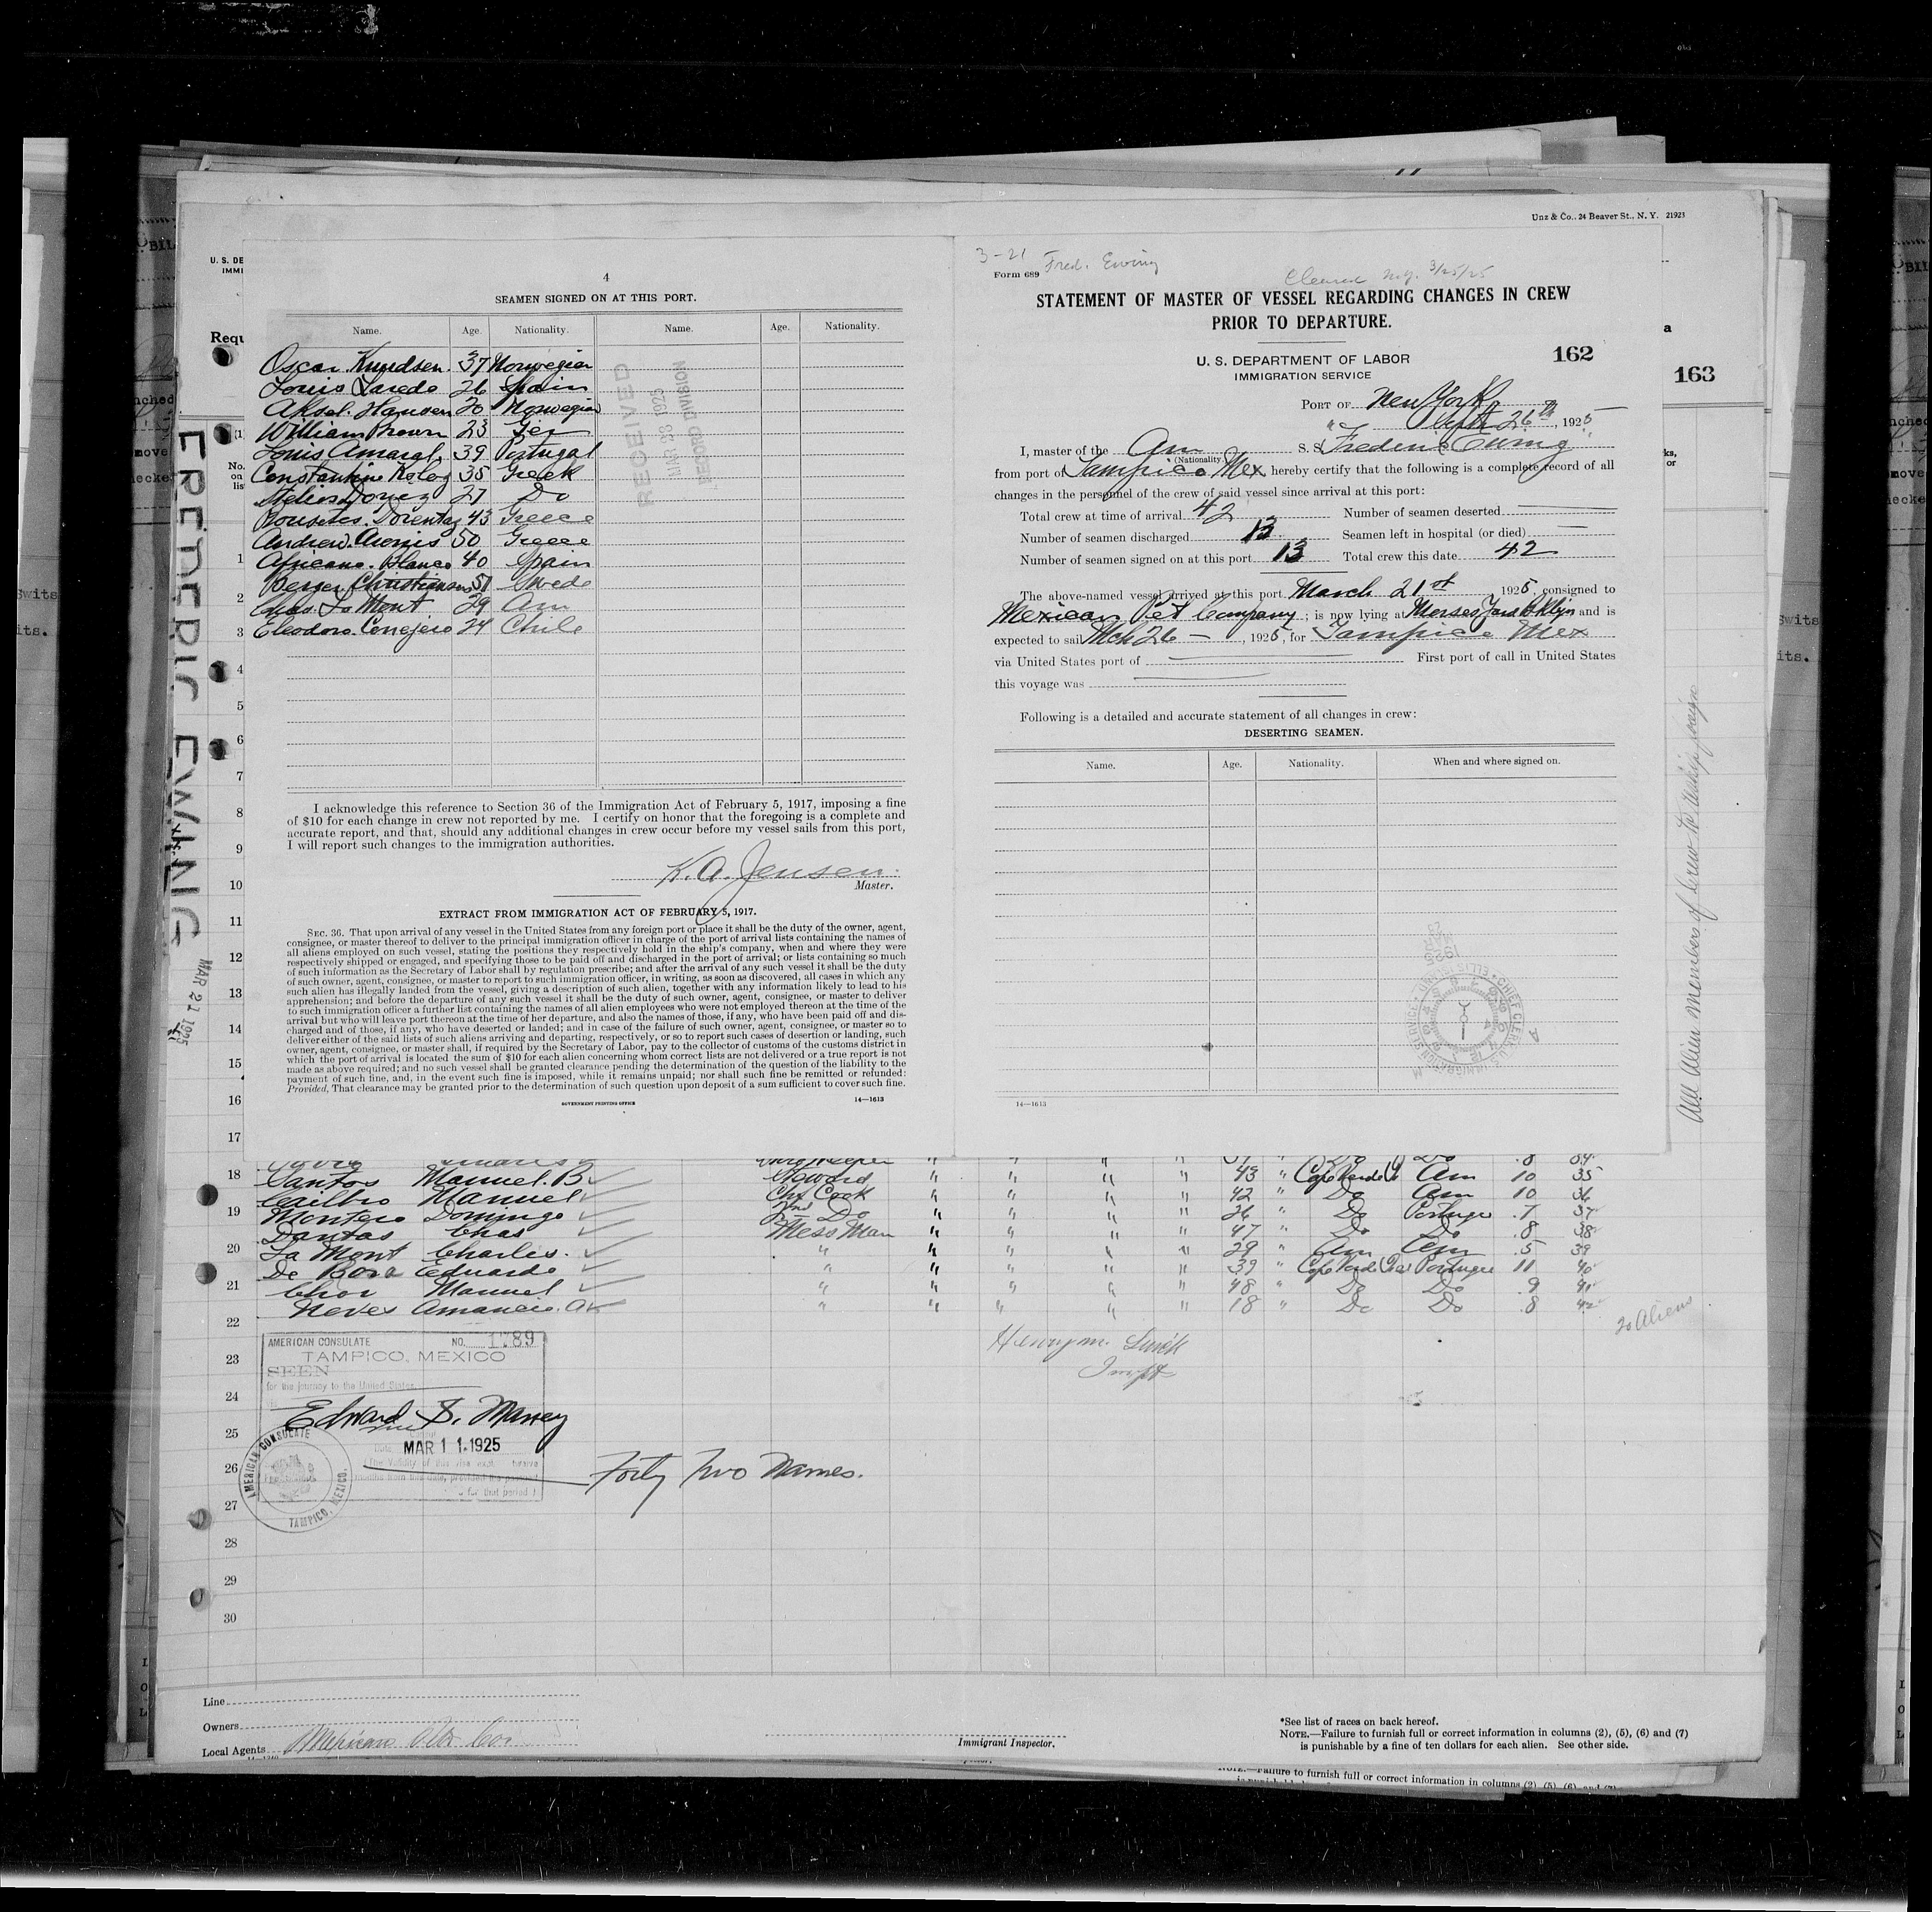 Unz & Co., 24 Beaver St., N. Y. 21923
U. S. DE
IMMI
Requ
4
SEAMEN SIGNED ON AT THIS PORT.
Name. Age. Nationality. Name. Age. Nationality.
Oscar Knudsen. 37 Norwegian
Louis Laredo 26 Spain
Aksel. Hansen 20 Norwegian
William Brown 23 Ger
Louis Amaral, 39 Portugal
Constantine 35 Greek
27 Do
43 Greece
Andrew. 50 Greece
Africano. Blanco 40 Spain
Berger Christiansen 51 Swede
Chas. La Mont 29 Am
Eleodoro Conejero 24 Chile
RECEIVED
RECORD DIVISION
I acknowledge this reference to Section 36 of the Immigration Act of February 5, 1917, imposing a fine
of $10 for each change in crew not reported by me. I certify on honor that the foregoing is a complete and
accurate report, and that, should any additional changes in crew occur before my vessel sails from this port,
I will report such changes to the immigration authorities.
K. A. Jensen.
Master.
EXTRACT FROM IMMIGRATION ACT OF FEBRUARY 5, 1917.
SEC. 36. That upon arrival of any vessel in the United States from any foreign port or place it shall be the duty of the owner, agent,
consignee, or master thereof to deliver to the principal immigration officer in charge of the port of arrival lists containing the names of
all aliens employed on such vessel, stating the positions they respectively hold in the ship's company, when and where they were
respectively shipped or engaged, and specifying those to be paid off and discharged in the port of arrival; or lists containing so much
of such information as the Secretary of Labor shall by regulation prescribe; and after the arrival of any such vessel it shall be the duty
of such owner, agent, consignee, or master to report to such immigration officer, in writing, as soon as discovered, all cases in which any
such alien has illegally landed from the vessel, giving a description of such alien, together with any information likely to lead to his
apprehension; and before the departure of any such vessel it shall be the duty of such owner, agent, consignee, or master to deliver
to such immigration officer a further list containing the names of all alien employees who were not employed thereon at the time of the
arrival but who will leave port thereon at the time of her departure, and also the names of those, if any, who have been paid off and dis-
charged and of those, if any, who have deserted or landed; and in case of the failure of such owner, agent, consignee, or master so to
deliver either of the said lists of such aliens arriving and departing, respectively, or so to report such cases of desertion or landing, such
owner, agent, consignee, or master shall, if required by the Secretary of Labor, pay to the collector of customs of the customs district in
which the port of arrival is located the sum of $10 for each alien concerning whom correct lists are not delivered or a true report is not
made as above required; and no such vessel shall be granted clearance pending the determination of the question of the liability to the
payment of such fine, and, in the event such fine is imposed, while it remains unpaid; nor shall such fine be remitted or refunded:
Provided, That clearance may be granted prior to the determination of such question upon deposit of a sum sufficient to cover such fine.
GOVERNMENT PRINTING OFFICE 14—1613
3-21 Fred. Ewing
Form 689
Cleared N.Y. 3/25/25
STATEMENT OF MASTER OF VESSEL REGARDING CHANGES IN CREW
PRIOR TO DEPARTURE.
U. S. DEPARTMENT OF LABOR
IMMIGRATION SERVICE
162
163
PORT OF New York,
26th, 1925
I, master of the Am (Nationality) S. S. Frederic Ewing
from port of Tampico Mex hereby certify that the following is a complete record of all
changes in the personnel of the crew of said vessel since arrival at this port:
Total crew at time of arrival 42 Number of seamen deserted
Number of seamen discharged 13 Seamen left in hospital (or died)
Number of seamen signed on at this port 13 Total crew this date 42
The above-named vessel arrived at this port March 21st 1925, consigned to
Mexican Pet Company; is now lying at Morses Yard Bklyn and is
expected to sail Mch 26 —, 1925, for Tampico Mex
via United States port of First port of call in United States
this voyage was
Following is a detailed and accurate statement of all changes in crew:
DESERTING SEAMEN.
Name. Age. Nationality. When and where signed on.
14—1613
FREDERIC EWING
MAR 21 1925
All Alien members of Crew to reship foreign
1
2
3
4
5
6
7
8
9
10
11
12
13
14
15
16
17
18 Santos Manuel. B Steward " " " " 43 " Cape Verde Is Am 10 35
Manuel Chf Cook " " " " 42 " Do Am 10 36
19 Montero Domingo 2nd Do " " " " 26 " Do Portugee .7 37
Dantas Chas Mess Man " " " " 47 " Do Do .8 38
20 La Mont Charles. " " " " " 29 " Am Am .5 39
De Rosa Eduardo " " " " " 39 " Cape Verde Is Portugee 11 40
21 Manuel " " " " " 48 " Do Do .9 41
Neves Amancio. A " " " " " 18 " Do Do .8 42
22
20 Aliens
23
24
25
26
27
28
29
30
AMERICAN CONSULATE NO. 1789
TAMPICO, MEXICO
SEEN
for the journey to the United States
Edward S. Maney
MAR 11 1925
AMERICAN CONSULATE
TAMPICO, MEXICO.
Henry M.
Insp
Forty Two Names.
Line
Owners
Local Agents Mexican Pet. Co.
Immigrant Inspector.
*See list of races on back hereof.
NOTE.—Failure to furnish full or correct information in columns (2), (5), (6) and (7)
is punishable by a fine of ten dollars for each alien. See other side.
NOTE.—Failure to furnish full or correct information in columns (2), (5), (6) and (7)